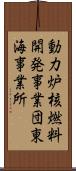 動力炉核燃料
開発事業団東
海事業所